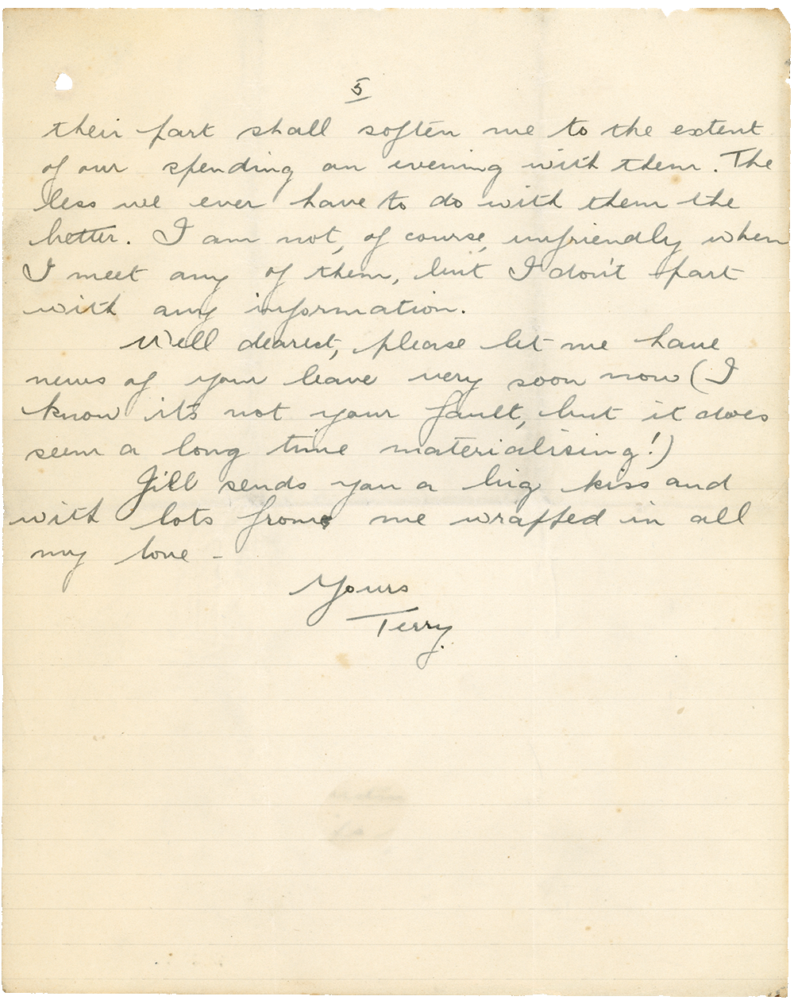 5
their part shall soften me to the extent
of our spending an evening with them. The
less we ever have to do with them the
better. I am not, of course, unfriendly when
I meet any of them, but I don't part
with any information.
Well dearest, please let me have
news of your leave very soon now (I
know it's not your fault, but it does
seem a long time materialising!)
Jill sends you a big kiss and
with lots from me wrapped in all
my love -
Yours
Terry.